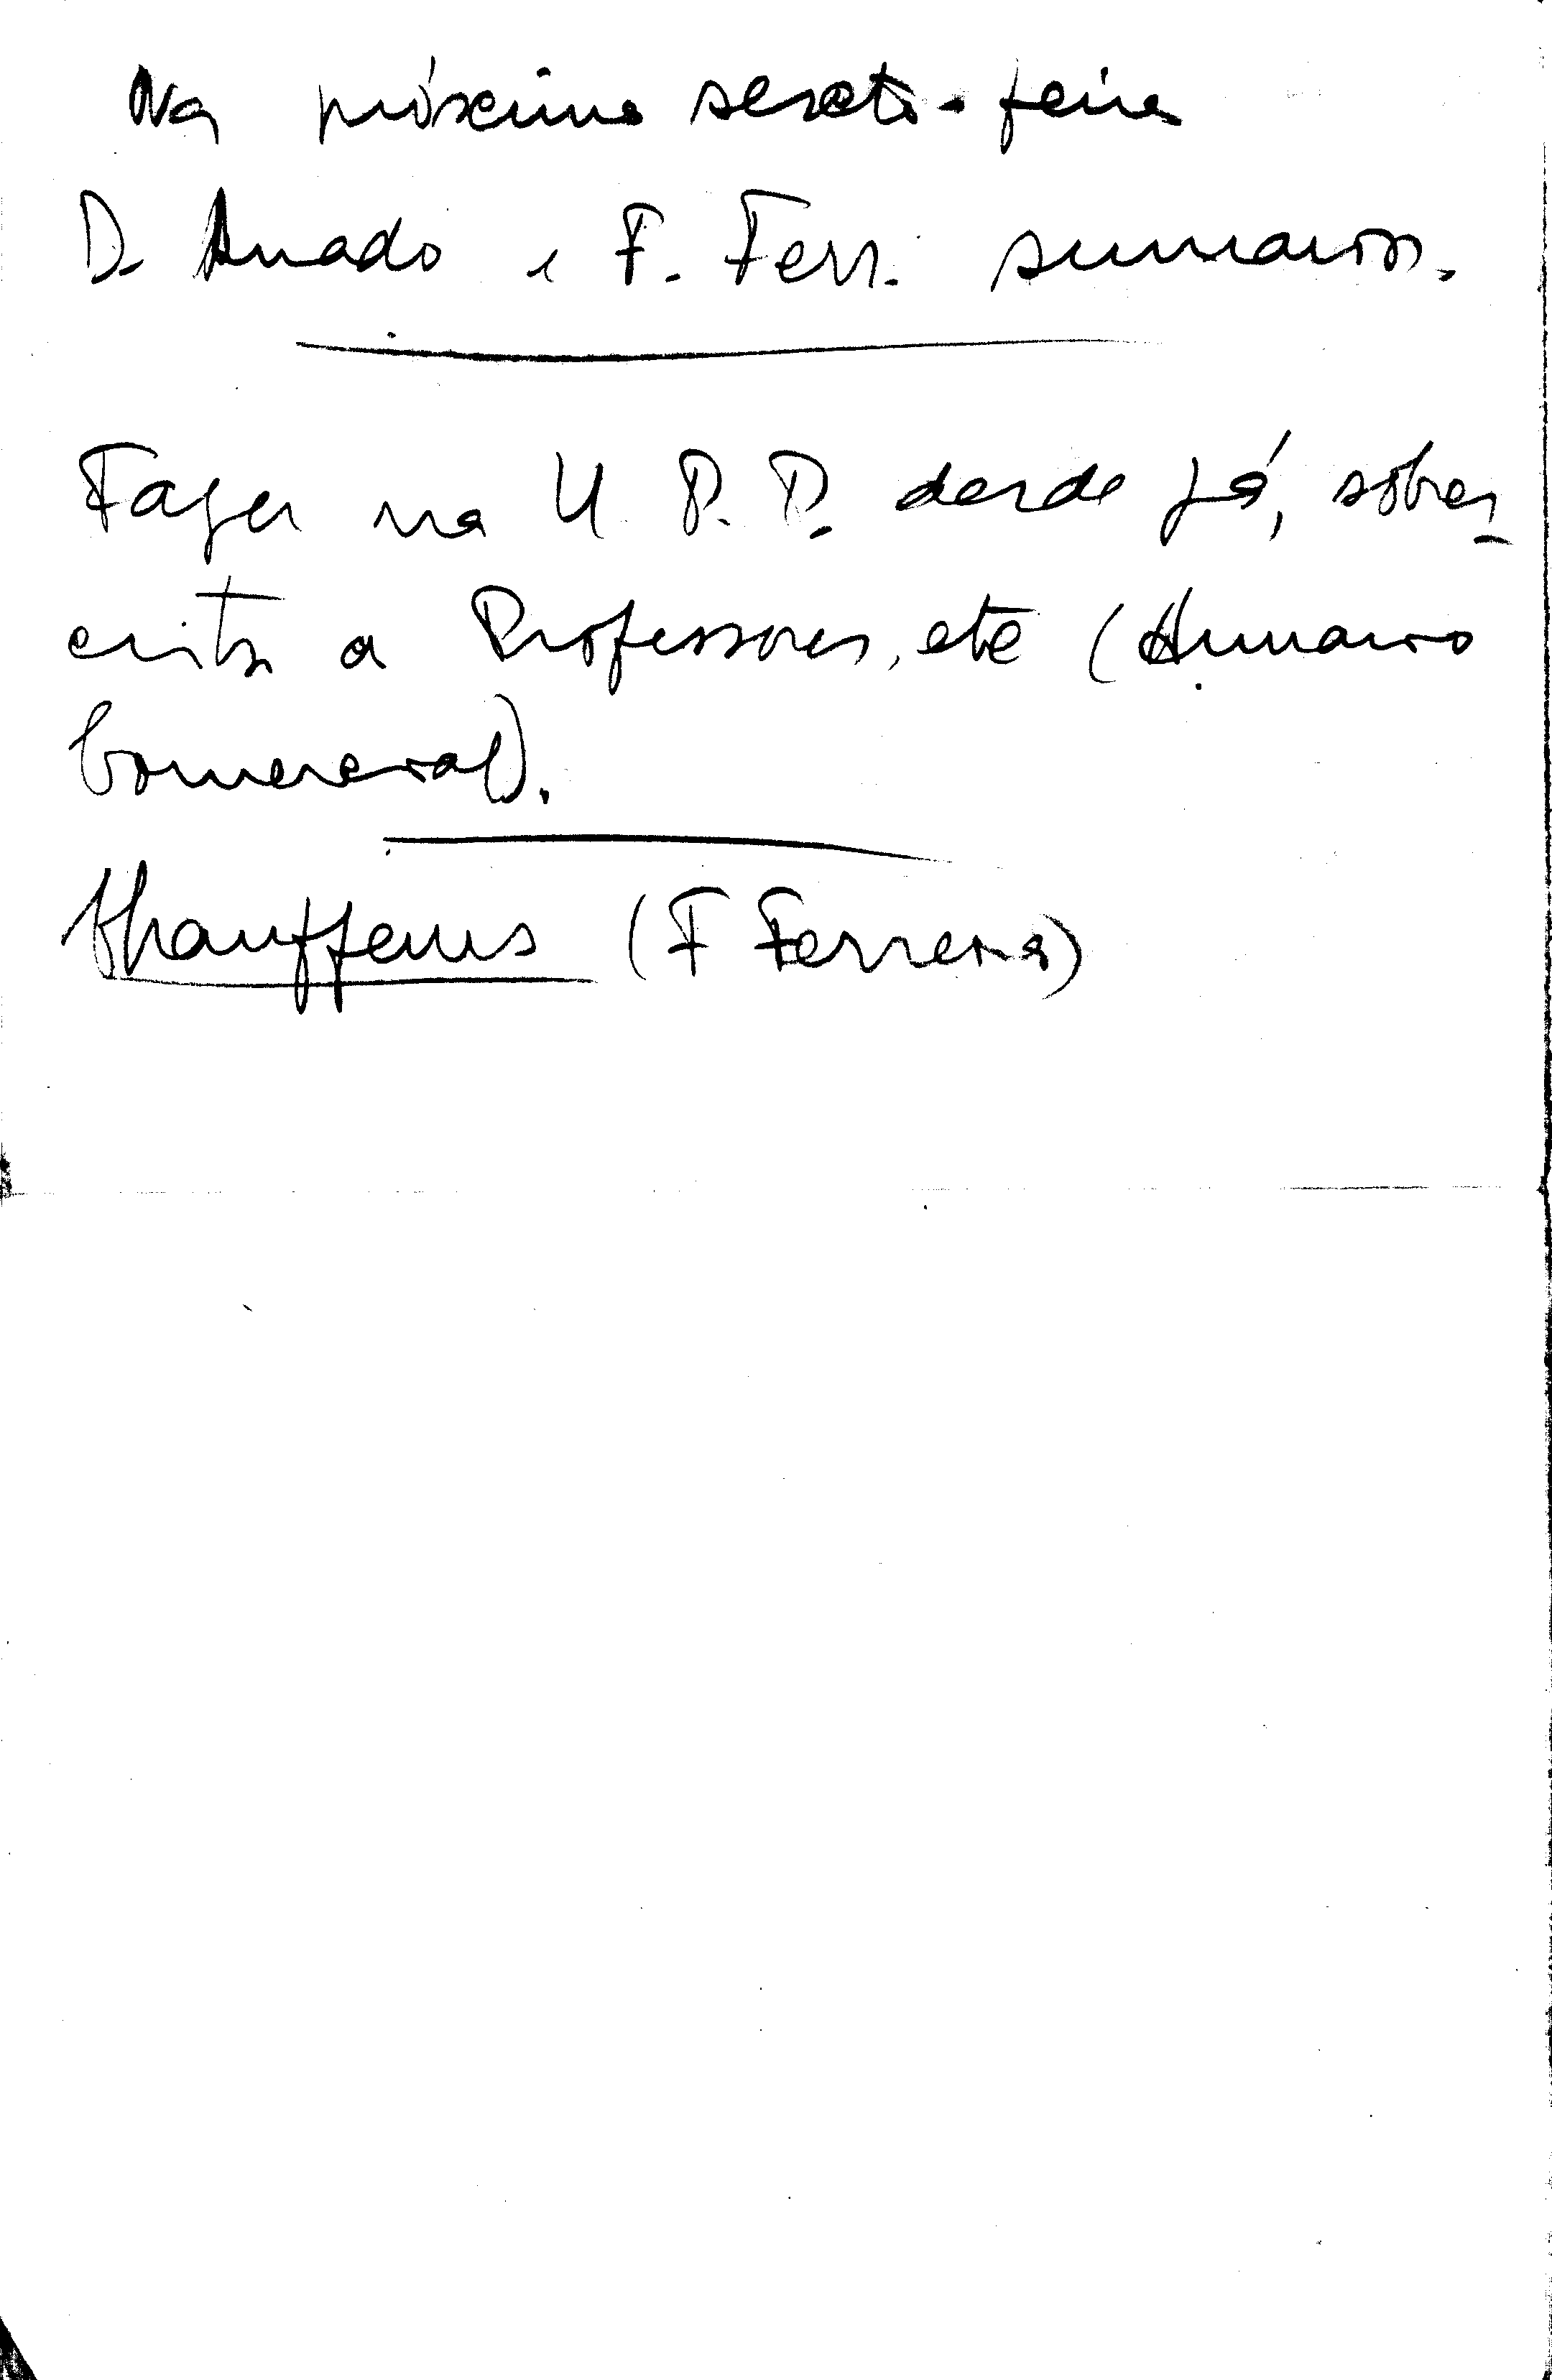 Na próxima sexta-feira
D. Amado e F. Ferr. sumarios.
Fazer na U. P. P. desde já, sobres
critos a Professores, etc (Anuario
Comercial).
Chauffeurs (F Ferreira)